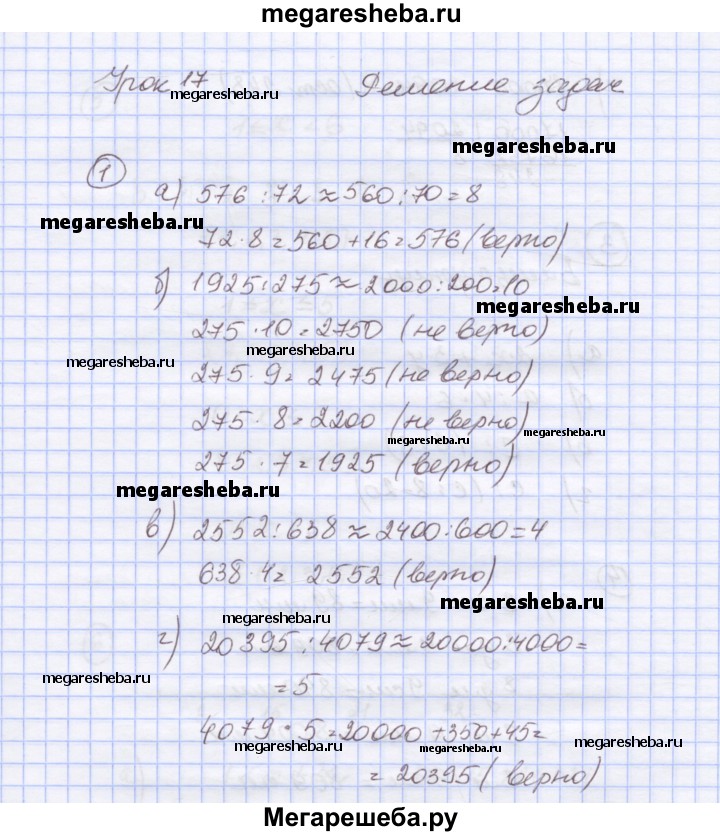 megaresheba.ru
Урок 17 Решение задач
megaresheba.ru
megaresheba.ru
1
а) 576 : 72 ≈ 560 : 70 = 8
megaresheba.ru
72 · 8 = 560 + 16 = 576 (верно)
б) 1925 : 275 ≈ 2000 : 200 = 10
megaresheba.ru
275 · 10 = 2750 (не верно)
megaresheba.ru
megaresheba.ru
275 · 9 = 2475 (не верно)
275 · 8 = 2200 (не верно)
megaresheba.ru
megaresheba.ru
275 · 7 = 1925 (верно)
megaresheba.ru
в) 2552 : 638 ≈ 2400 : 600 = 4
638 · 4 = 2552 (верно)
megaresheba.ru
megaresheba.ru
г) 20395 : 4079 ≈ 20000 : 4000 =
megaresheba.ru
= 5
4079 · 5 = 20000 + 350 + 45 =
megaresheba.ru
megaresheba.ru
megaresheba.ru
= 20395 (верно)
Мегарешеба.ру